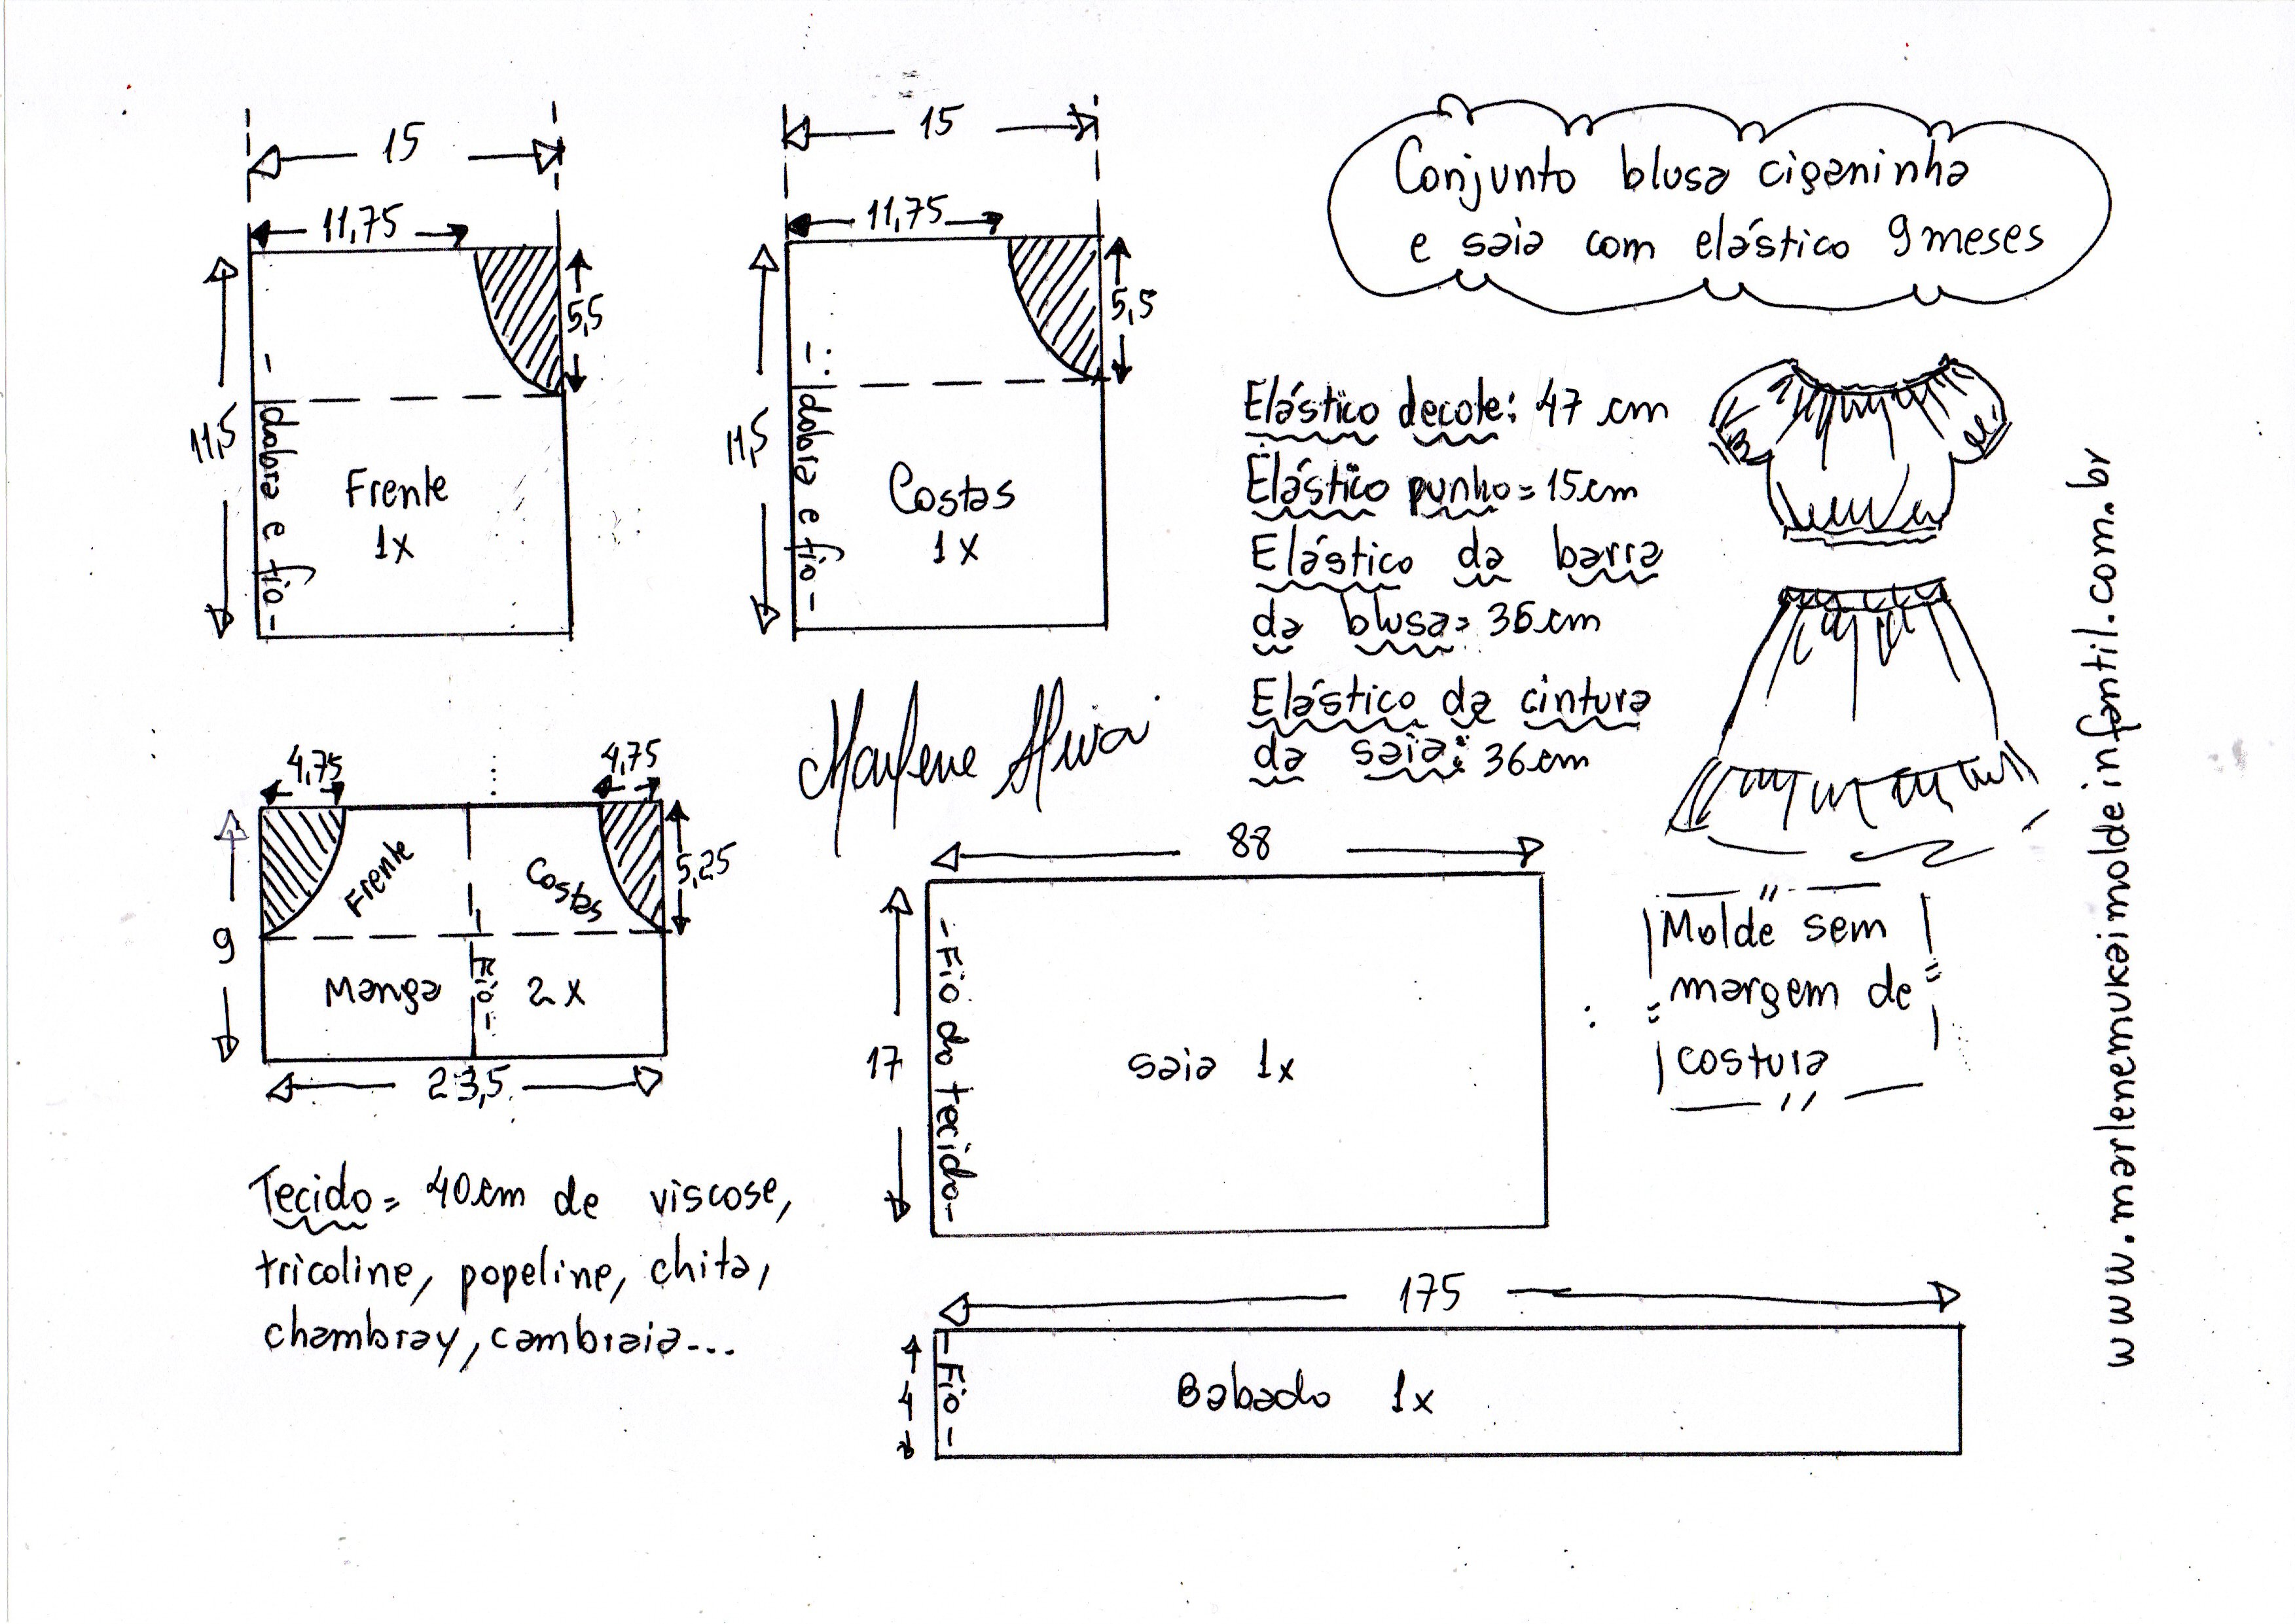 15
11,75
5,5
11,5
dobra e fio
Frente
1x
15
11,75
5,5
11,5
dobra e fio
Costas
1x
Conjunto blusa ciganinha
e saia com elástico 9 meses
Elástico decote: 47 cm
Elástico punho = 15 cm
Elástico da barra
da blusa = 36 cm
Elástico da cintura
da saia: 36 cm
www.marlenemukaimoldeinfantil.com.br
4,75
4,75
5,25
9
Frente
Costas
Manga
Fio
2x
23,5
Marlene
88
17
Fio do tecido
saia 1x
Molde sem
margem de
costura
Tecido = 40 cm de viscose,
tricoline, popeline, chita,
chambray, cambraia...
175
4
Fio
Babado 1x